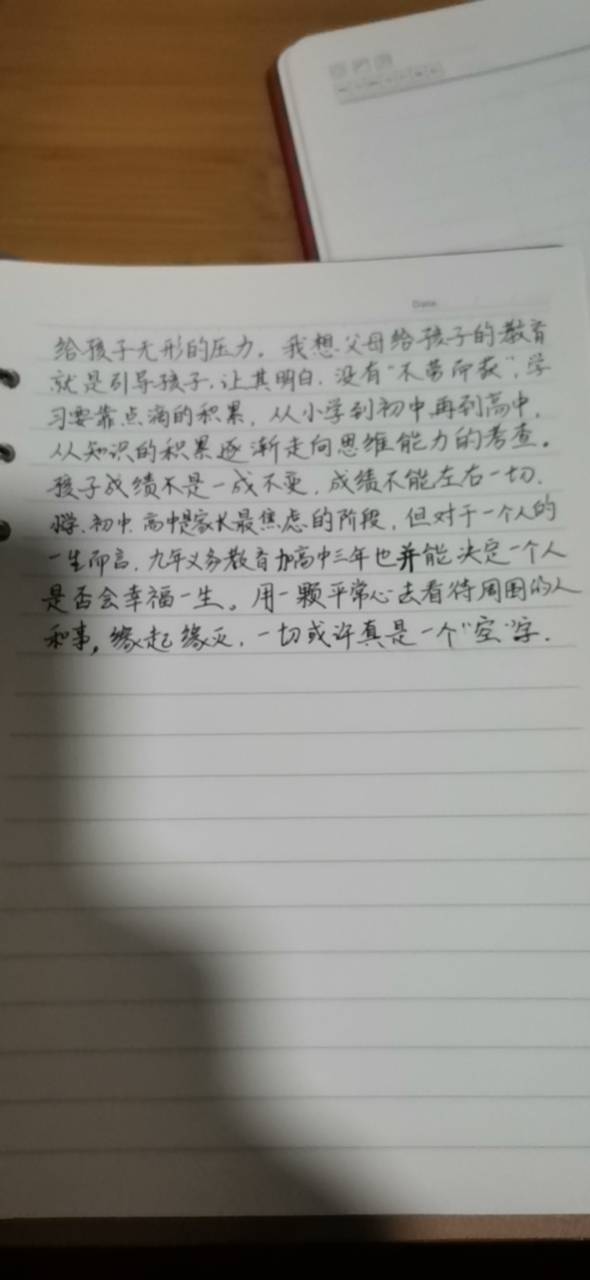 Date
给孩子无形的压力。我想父母给孩子的教育
就是引导孩子,让其明白,没有“不劳而获”,学
习要靠点滴的积累,从小学到初中再到高中,
从知识的积累逐渐走向思维能力的考查。
孩子成绩不是一成不变,成绩不能左右一切,
小学、初中、高中是家长最焦虑的阶段,但对于一个人的
一生而言,九年义务教育加高中三年也并能决定一个人
是否会幸福一生。用一颗平常心去看待周围的人
和事,缘起缘灭,一切或许真是一个“空”字.